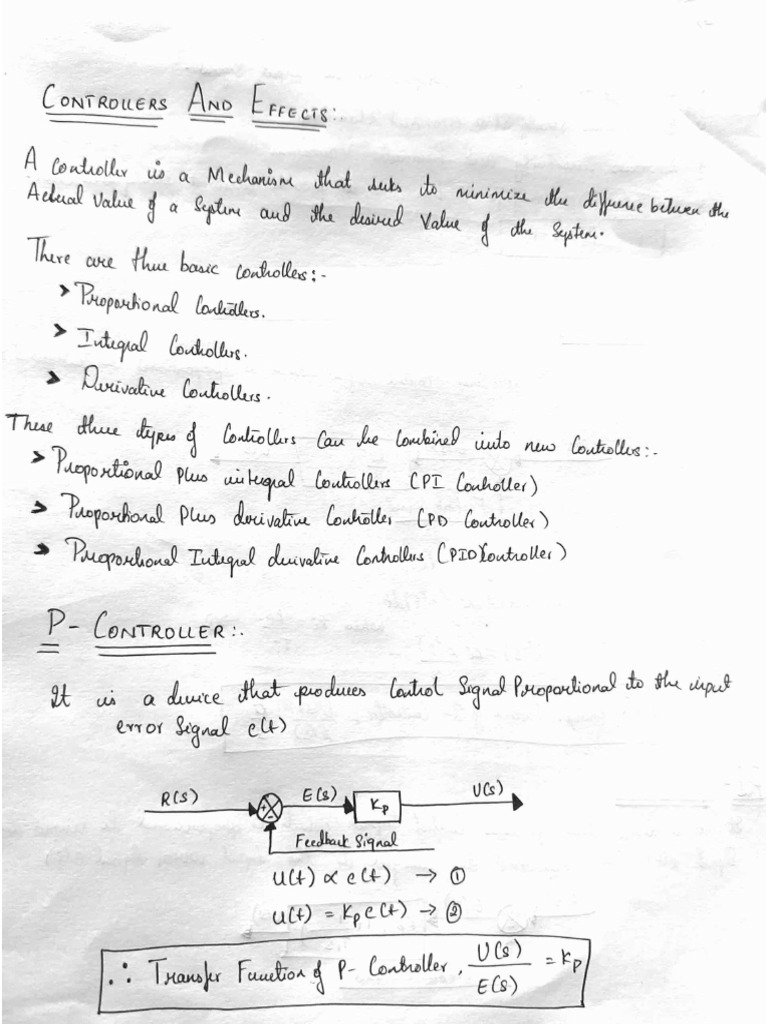 CONTROLLERS AND EFFECTS:.
A Controller is a Mechanism that seeks to minimize the difference between the
Actual Value of a System and the desired Value of the System.
There are three basic controllers:-
> Proportional Controllers.
> Integral Controllers.
> Derivative Controllers.
These three types of Controllers Can be Combined into new Controllers:-
> Proportional Plus integral Controllers (PI Controller)
> Proportional Plus derivative Controller (PD Controller)
> Proportional Integral derivative Controllers (PID Controller)
P- CONTROLLER:.
It is a device that produces Control Signal Proportional to the input
error Signal e(t)
R(s) + - E(s) Kp U(s)
Feedback Signal
U(t) ∝ e(t) → ①
U(t) = Kp e(t) → ②
∴ Transfer Function of P- Controller, U(s)/E(s) = Kp